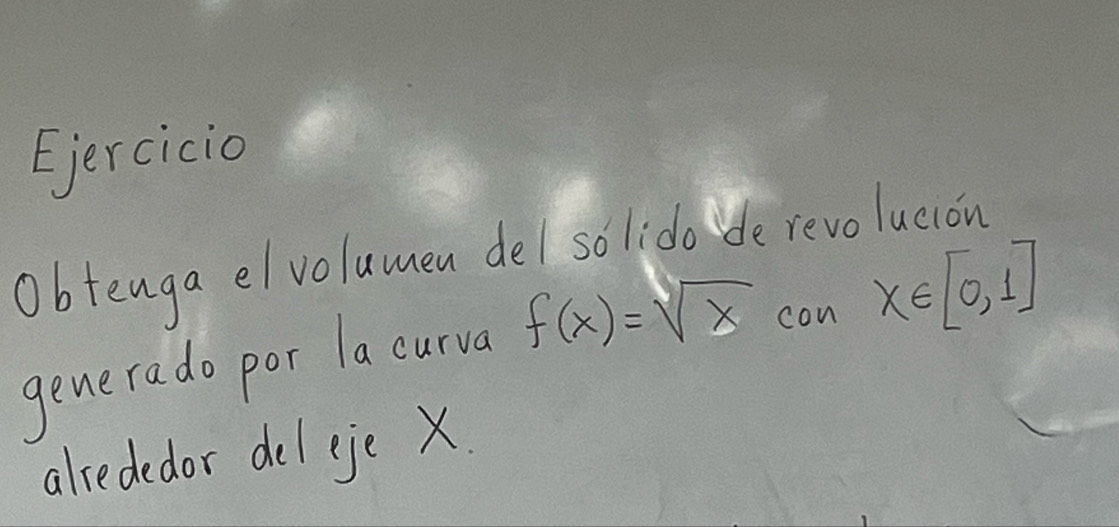 Ejercicio
Obtenga el volumen del sólido de revolución
generado por la curva f(x)=√x con x∈[0,1]
alrededor del eje X.